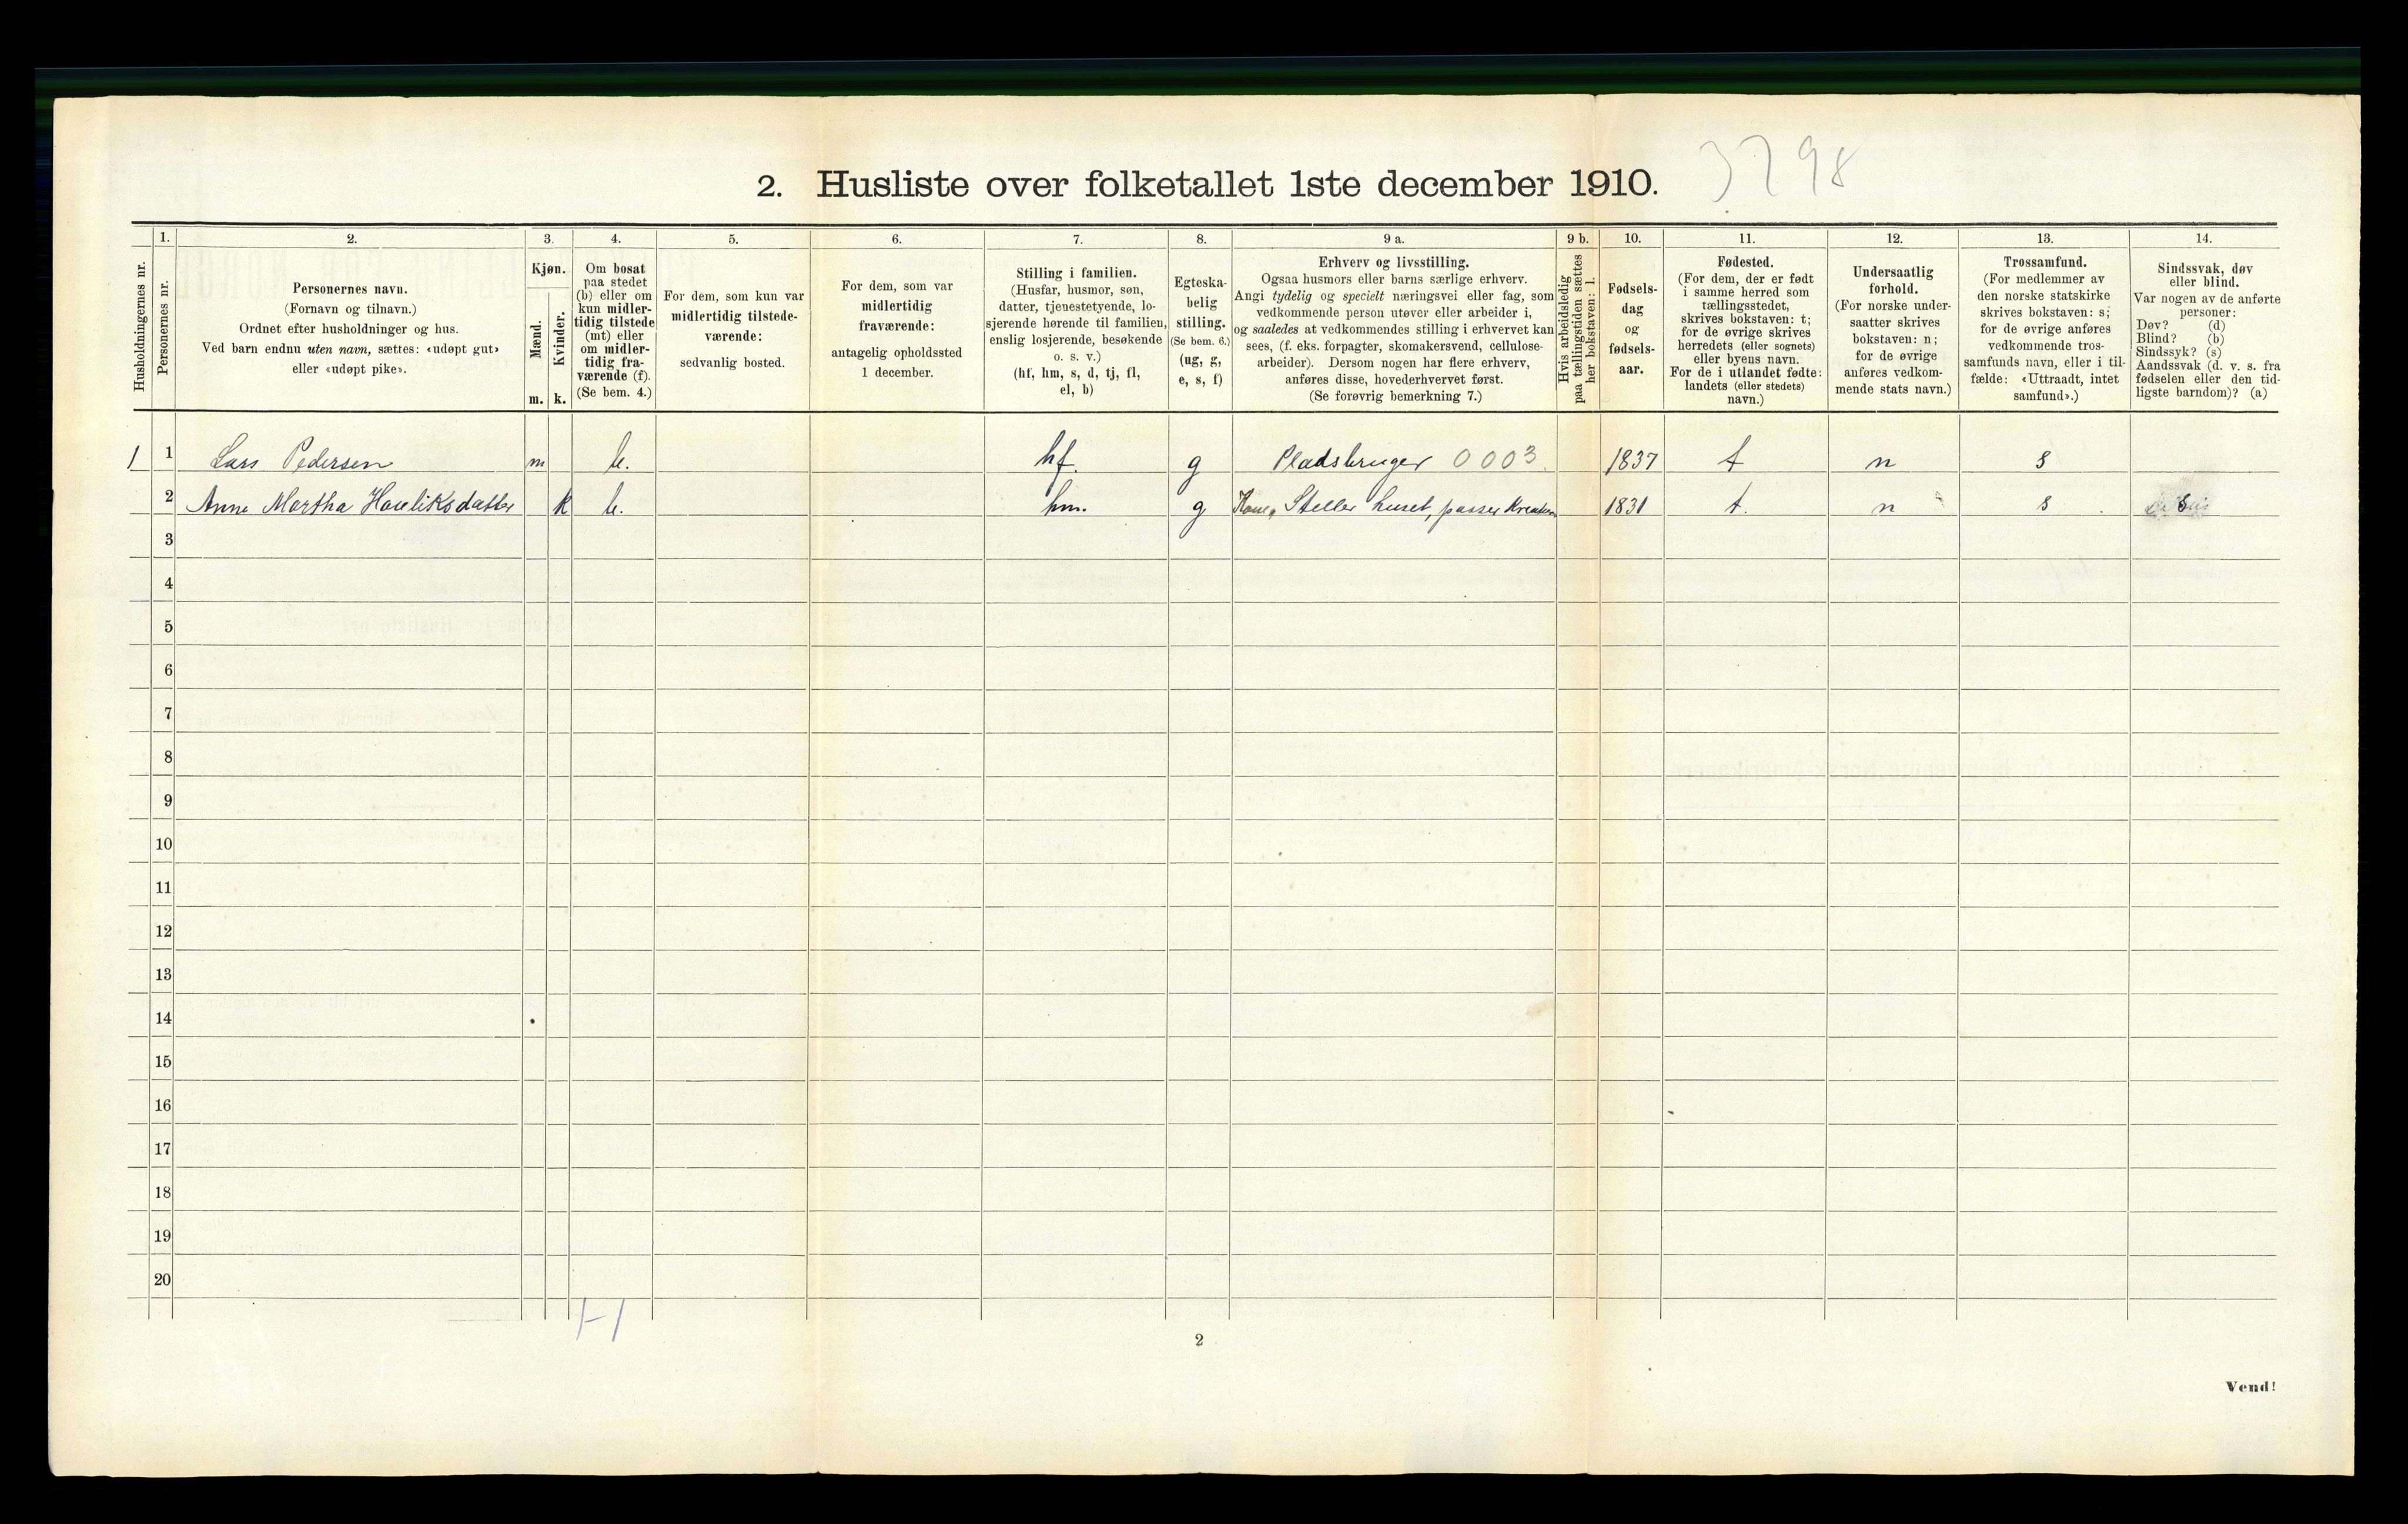 3798
2. Husliste over folketallet 1ste december 1910.
Husholdningernes nr.
1.
Personernes nr.
2.
Personernes navn.
(Fornavn og tilnavn.)
Ordnet efter husholdninger og hus.
Ved barn endnu uten navn, sættes: «udøpt gut»
eller «udøpt pike».
3.
Kjøn.
Mænd.
m.
Kvinder.
k.
4.
Om bosat
paa stedet
(b) eller om
kun midler-
tidig tilstede
(mt) eller
om midler-
tidig fra-
værende (f).
(Se bem. 4.)
5.
For dem, som kun var
midlertidig tilstede-
værende:
sedvanlig bosted.
6.
For dem, som var
midlertidig
fraværende:
antagelig opholdssted
1 december.
7.
Stilling i familien.
(Husfar, husmor, søn,
datter, tjenestetyende, lo-
sjerende hørende til familien,
enslig losjerende, besøkende
o. s. v.)
(hf, hm, s, d, tj, fl,
el, b)
8.
Egteska-
belig
stilling.
(Se bem. 6.)
(ug, g,
e, s, f)
9 a.
Erhverv og livsstilling.
Ogsaa husmors eller barns særlige erhverv.
Angi tydelig og specielt næringsvei eller fag, som
vedkommende person utøver eller arbeider i,
og saaledes at vedkommendes stilling i erhvervet kan
sees, (f. eks. forpagter, skomakersvend, cellulose-
arbeider). Dersom nogen har flere erhverv,
anføres disse, hovederhvervet først.
(Se forøvrig bemerkning 7.)
9 b.
Hvis arbeidsledig
paa tællingstiden sættes
her bokstaven: l.
10.
Fødsels-
dag
og
fødsels-
aar.
11.
Fødested.
(For dem, der er født
i samme herred som
tællingsstedet,
skrives bokstaven: t;
for de øvrige skrives
herredets (eller sognets)
eller byens navn.
For de i utlandet fødte:
landets (eller stedets)
navn.)
12.
Undersaatlig
forhold.
(For norske under-
saatter skrives
bokstaven: n;
for de øvrige
anføres vedkom-
mende stats navn.)
13.
Trossamfund.
(For medlemmer av
den norske statskirke
skrives bokstaven: s;
for de øvrige anføres
vedkommende tros-
samfunds navn, eller i til-
fælde: «Uttraadt, intet
samfund».)
14.
Sindssvak, døv
eller blind.
Var nogen av de anførte
personer:
Døv? (d)
Blind? (b)
Sindssyk? (s)
Aandssvak (d. v. s. fra
fødselen eller den tid-
ligste barndom)? (a)
1 1 Lars Pedersen m b. hf. g Pladsbruger 0003. 1837 t n s
2 Anne Martha k b. hm. g Kone, Steller huset, passer 1831 t. n s
3
4
5
6
7
8
9
10
11
12
13
14
15
16
17
18
19
20
1-1
2
Vend!